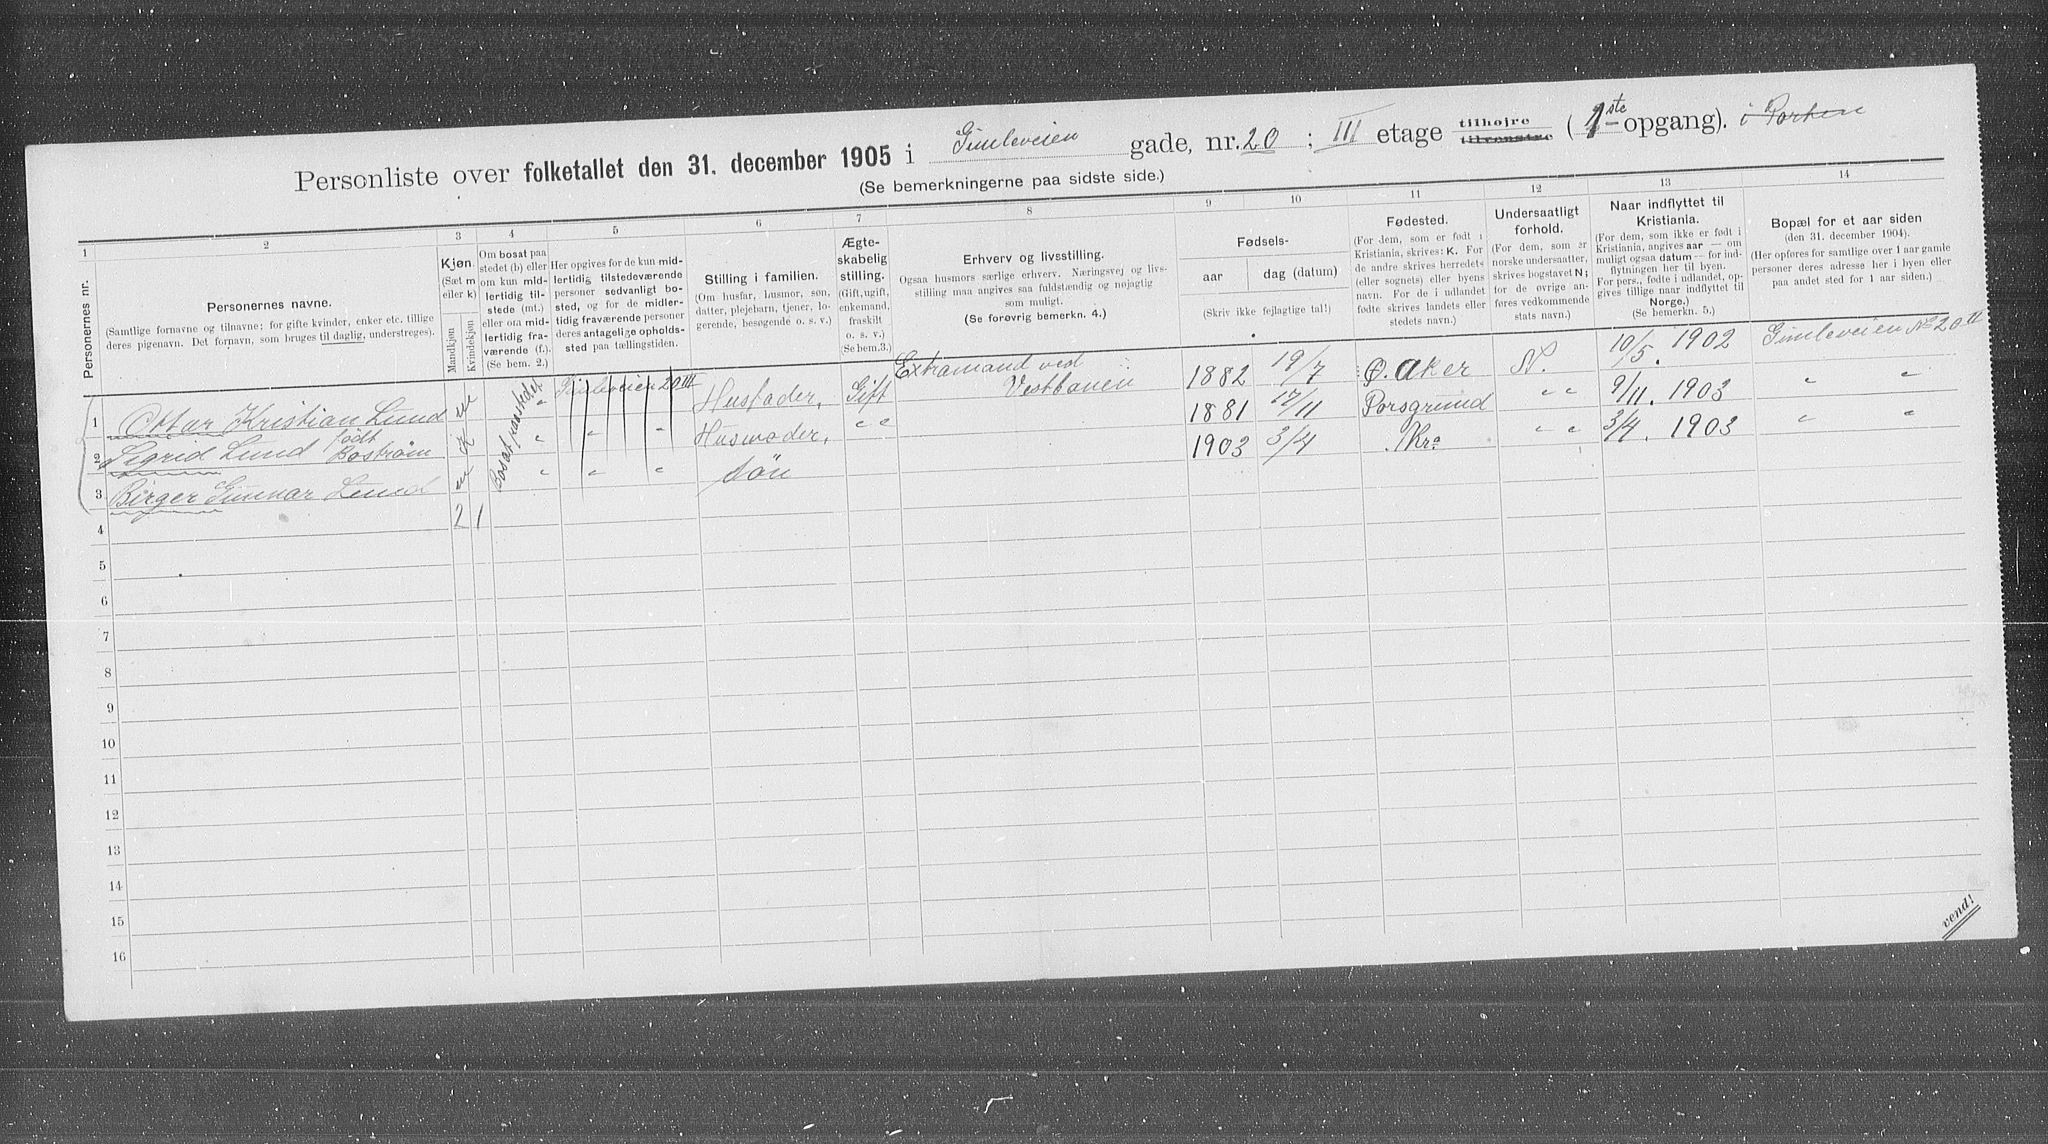 Personliste over folketallet den 31. december 1905 i Gimleveien gade, nr. 20 ; III etage tilhøjre tilvenstre ( 1ste opgang). i Porten
(Se bemerkningerne paa sidste side.)
1 2 3 4 5 6 7 8 9 10 11 12 13 14
Personernes nr.
Personernes navne.
(Samtlige fornavne og tilnavne; for gifte kvinder, enker etc. tillige
deres pigenavn. Det fornavn, som bruges til daglig, understreges).
Kjøn.
(Sæt m
eller k)
Mandkjøn
Kvindekjøn
Om bosat paa
stedet (b) eller
om kun mid-
lertidig til-
stede (mt.)
eller om mid-
lertidig fra-
værende (f.).
(Se bem. 2.)
Her opgives for de kun mid-
lertidig tilstedeværende
personer sedvanligt bo-
sted, og for de midler-
tidig fraværende personer
deres antagelige opholds-
sted paa tællingstiden.
Stilling i familien.
(Om husfar, husmor, søn,
datter, plejebarn, tjener, lo-
gerende, besøgende o. s. v.)
Ægte-
skabelig
stilling.
(Gift, ugift,
enkemand,
fraskilt
o. s. v.)
(Se bem.3.)
Erhverv og livsstilling.
Ogsaa husmors særlige erhverv. Næringsvej og livs-
stilling maa angives saa fuldstændig og nøjagtig
som muligt.
(Se forøvrig bemerkn. 4.)
Fødsels-
aar dag (datum)
(Skriv ikke fejlagtige tal!)
Fødested.
(For dem, som er født i
Kristiania, skrives: K. For
de andre skrives herredets
(eller sognets) eller byens
navn. For de i udlandet
fødte skrives landets eller
stedets navn.)
Undersaatligt
forhold.
(For dem, som er
norske undersaatter,
skrives bogstavet N;
for de øvrige an-
føres vedkommende
stats navn.)
Naar indflyttet til
Kristiania.
(For dem, som ikke er født i
Kristiania, angives aar — om
muligt ogsaa datum — for ind-
flytningen her til byen.
For pers., fødte i udlandet, op-
gives tillige naar indflyttet til
Norge.)
(Se bemerkn. 5.)
Bopæl for et aar siden
(den 31. december 1904).
(Her opføres for samtlige over 1 aar gamle
personer deres adresse her i byen eller
paa andet sted for 1 aar siden.)
1 Ottar Kristian Lund m Bosat paa stedet Gimleveien 20 III Husfader, Gift Extramand ved Vestbanen 1882 19/7 Ø. Aker N. 10/5. 1902 Gimleveien No 20 II
2 Sigrid Lund født Bostrøm k " " " Husmoder, " " 1881 17/11 Porsgrund " " 9/11. 1903 " "
3 Birger Gunnar Lund m " " " Søn 1903 3/4 Kra " " 3/4. 1903 " "
4 2 1
5
6
7
8
9
10
11
12
13
14
15
16
vend!